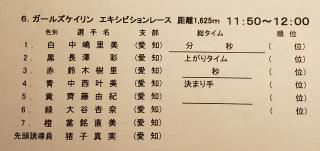 6. ガールズケイリン エキシビションレース 距離1,625m 11:50～12:00
色別 選手名 支部 総タイム 順位
1. 白 中嶋里美 (愛知) 分 秒 ( 位)
2. 黒 長澤彩 (愛知) 上がりタイム ( 位)
3. 赤 鈴木樹里 (愛知) 秒 ( 位)
4. 青 中西叶美 (愛知) 決まり手 ( 位)
5. 黄 齊藤由紀 (愛知) ( 位)
6. 緑 大谷杏奈 (愛知) ( 位)
7. 橙 當銘直美 (愛知) ( 位)
先頭誘導員 猪子真実 (愛知)